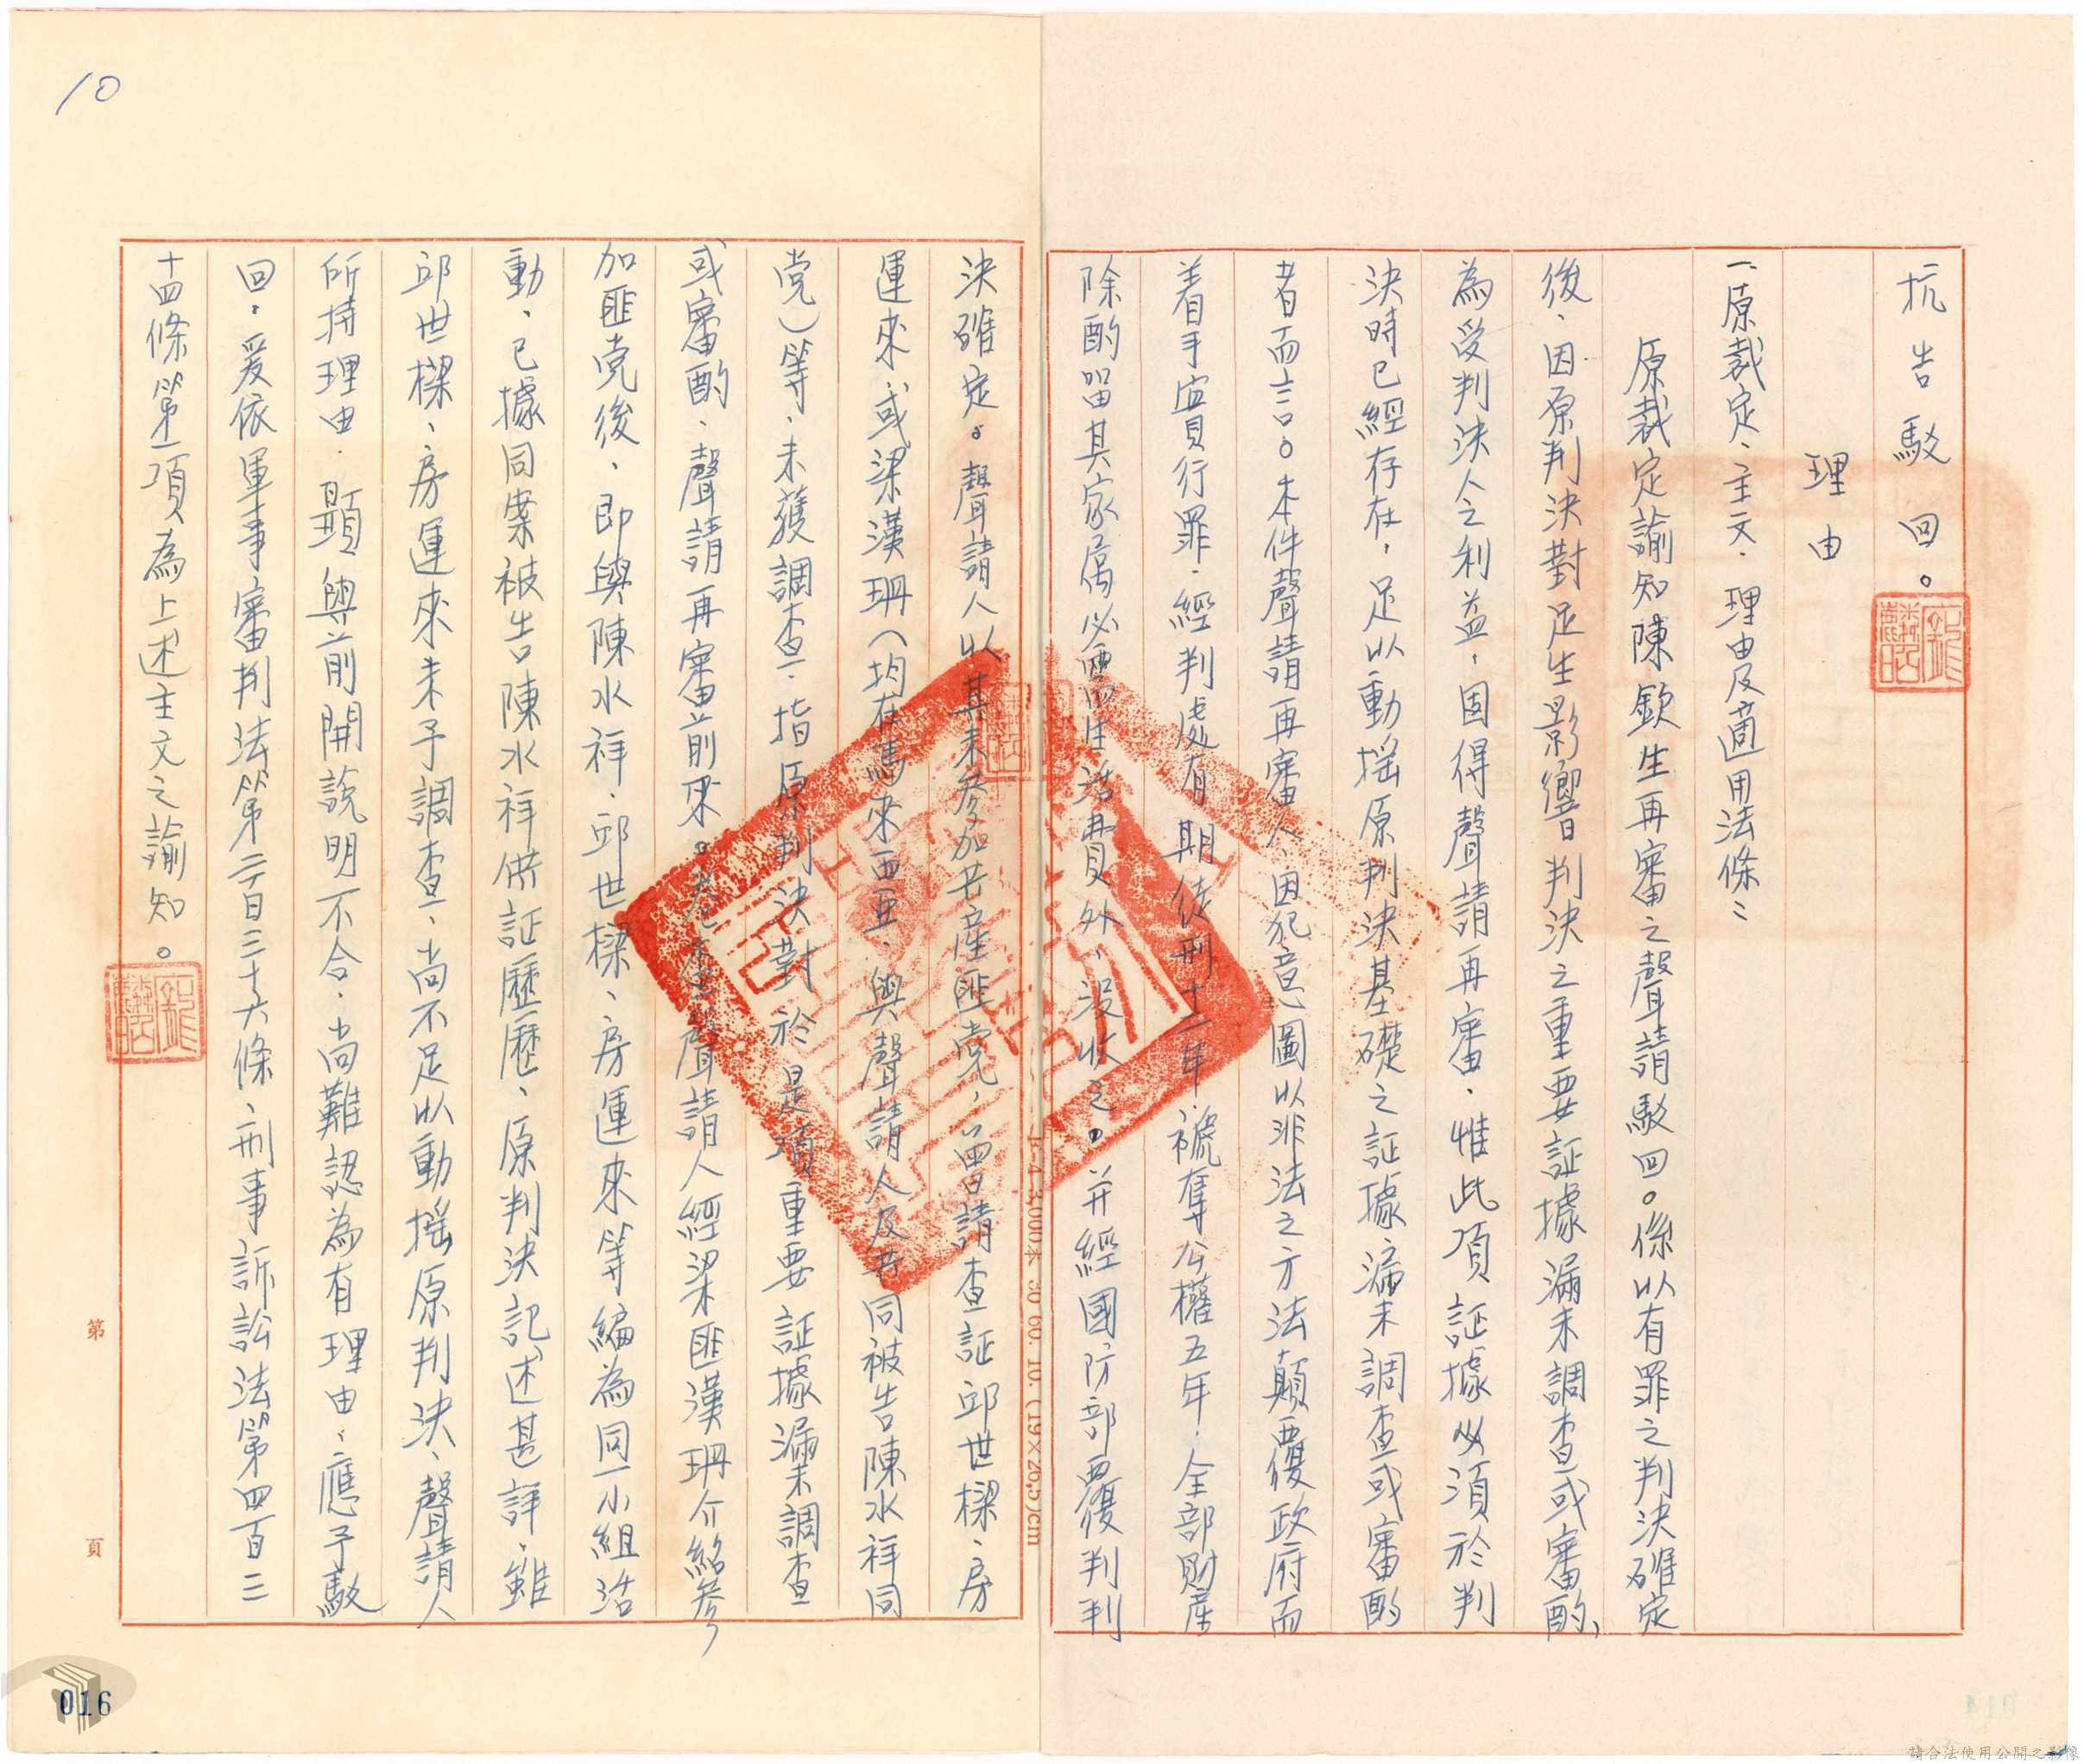 抗告駁回。
理由
一、原裁定、主文、理由及適用法條：
原裁定諭知陳欽生再審之聲請駁回。係以有罪之判決確定
後、因原判決對足生影響判決之重要証據漏未調查或審酌、
為受判決人之利益、固得聲請再審、惟此項証據必須於判
決時已經存在，足以動搖原判決基礎之証據漏未調查或審酌
者而言。本件聲請再審人、因犯意圖以非法之方法顛覆政府而
着手實行罪、經判處有期徒刑十二年、褫奪公權五年、全部財產
除酌留其家屬必需生活費外、沒收之。并經國防部覆判判
決確定。聲請人以其未參加共產匪党，曾請查証邱世樑、房
運來或梁漢珊（均在馬來西亞、與聲請人及共同被告陳水祥同
党）等、未獲調查、指原判決對於是項重要証據漏未調查
或審酌、聲請再審前來。卷查聲請人經梁匪漢珊介紹參
加匪党後、即與陳水祥、邱世樑、房運來等編為同一小組活
動、已據同案被告陳水祥供証歷歷、原判決記述甚詳、雖
邱世樑、房運來未予調查、尚不足以動搖原判決、聲請人
所持理由、顯與前開說明不合、尚難認為有理由、應予駁
回、爰依軍事審判法第二百三十六條、刑事訴訟法第四百三
十四條第一項為上述主文之諭知。
10
第 頁
F-4-3,000本 30 60. 10. (19×26.5)cm
016
請合法使用公開之影像